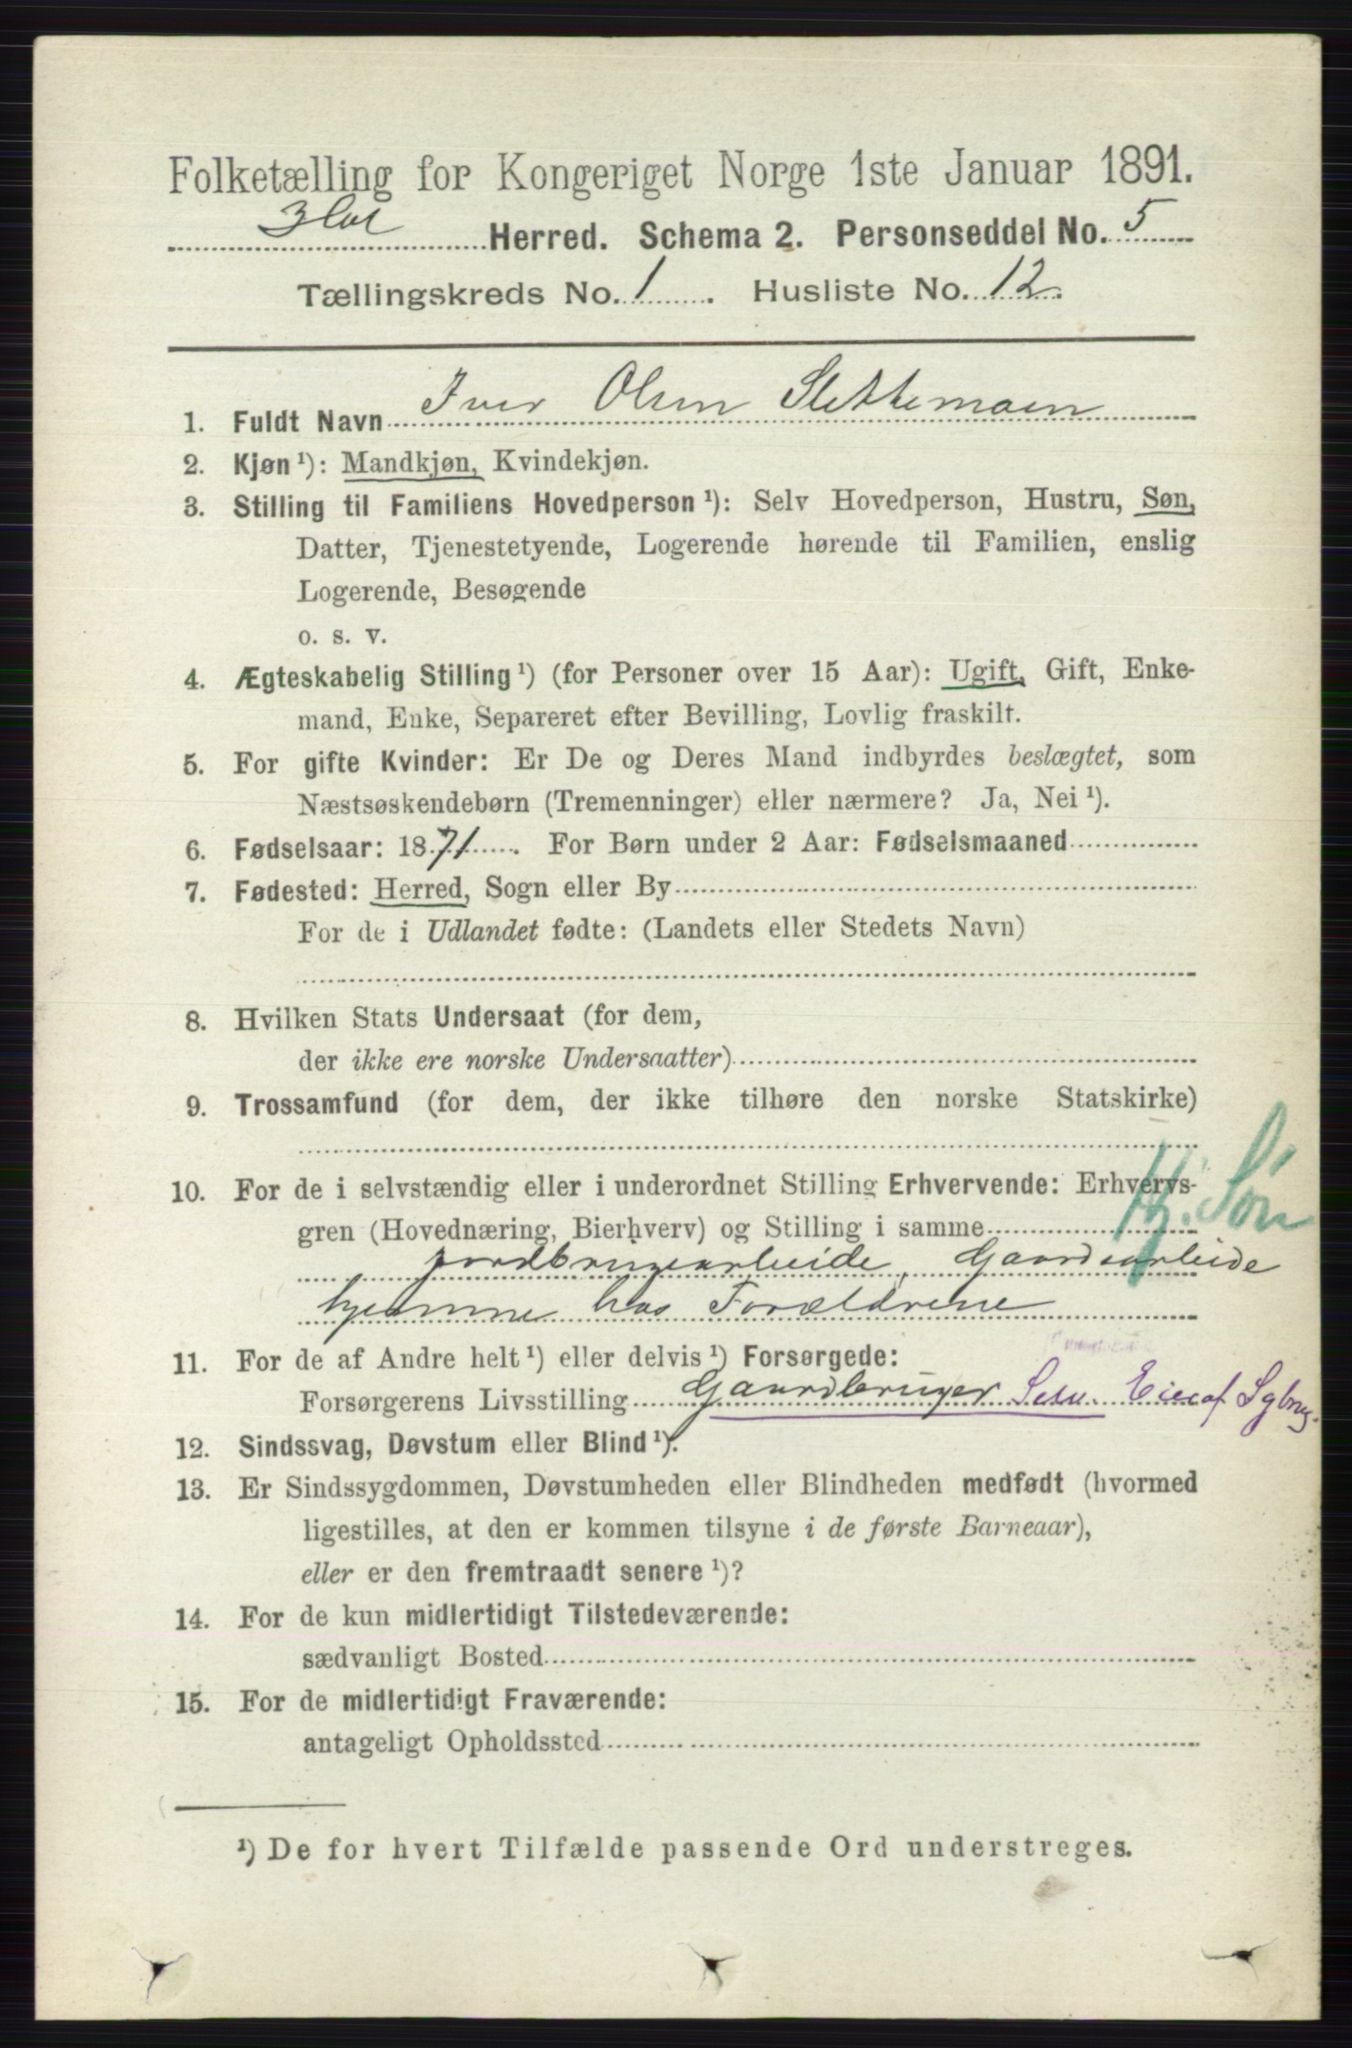 Folketælling for Kongeriget Norge 1ste Januar 1891.
Hol Herred. Schema 2. Personseddel No. 5
Tællingskreds No. 1. Husliste No. 12.
1. Fuldt Navn Iver Olsen Slettemoen
2. Kjøn ¹): Mandkjøn, Kvindekjøn.
3. Stilling til Familiens Hovedperson ¹): Selv Hovedperson, Hustru, Søn,
Datter, Tjenestetyende, Logerende hørende til Familien, enslig
Logerende, Besøgende
o. s. v.
4. Ægteskabelig Stilling ¹) (for Personer over 15 Aar): Ugift, Gift, Enke-
mand, Enke, Separeret efter Bevilling, Lovlig fraskilt.
5. For gifte Kvinder: Er De og Deres Mand indbyrdes beslægtet, som
Næstsøskendebørn (Tremenninger) eller nærmere? Ja, Nei ¹).
6. Fødselsaar: 1871. For Børn under 2 Aar: Fødselsmaaned
7. Fødested: Herred, Sogn eller By
For de i Udlandet fødte: (Landets eller Stedets Navn)
8. Hvilken Stats Undersaat (for dem,
der ikke ere norske Undersaatter)
9. Trossamfund (for dem, der ikke tilhøre den norske Statskirke)
Hj. Søn
10. For de i selvstændig eller i underordnet Stilling Erhvervende: Erhvervs-
gren (Hovednæring, Bierhverv) og Stilling i samme
jordbrugsarbeide, Gaardsarbeide
hjemme hos Forældrene
11. For de af Andre helt ¹) eller delvis ¹) Forsørgede:
Forsørgerens Livsstilling Gaardbruger Selv. Eier af
12. Sindssvag, Døvstum eller Blind ¹).
13. Er Sindssygdommen, Døvstumheden eller Blindheden medfødt (hvormed
ligestilles, at den er kommen tilsyne i de første Barneaar),
eller er den fremtraadt senere ¹)?
14. For de kun midlertidigt Tilstedeværende:
sædvanligt Bosted
15. For de midlertidigt Fraværende:
antageligt Opholdssted
¹) De for hvert Tilfælde passende Ord understreges.